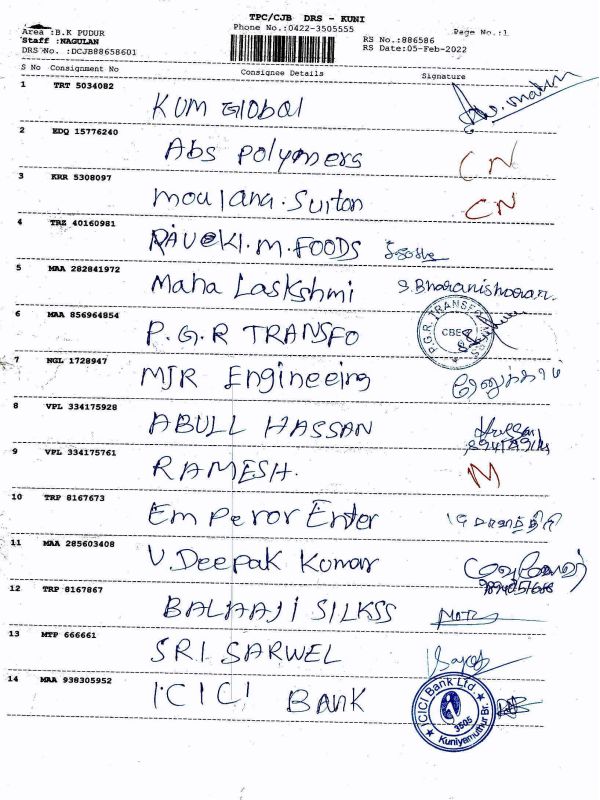 TPC/CJB DRS - KUNI
Area :B.K PUDUR Phone No.:0422-3505555 Page No.:1
Staff :NAGULAN RS No.:886586
DRS No. :DCJB88658601 RS Date:05-Feb-2022
S No Consignment No Consignee Details Signature
1 TRT 5034082 KUM Global
2 EDQ 15776240 Abs polymers CN
3 KRR 5308097 moulana. Suiton CN
4 TRZ 40160981 M. FOODS
5 MAA 282841972 Maha Laskshmi S. Bharanishwaran.
6 MAA 856964854 P.G.R TRANSFO P.G.R. TRANSFORMERS CBE
7 NGL 1728947 MJR Engineeing
8 VPL 334175928 ABULL HASSAN
9 VPL 334175761 RAMESH. M
10 TRP 8167673 Emperor Enter
11 MAA 285603408 V. Deepak Kumar
12 TRP 8167867 BALAAJI SILKSS
13 MTP 666661 SRI SARWEL
14 MAA 938305952 ICICI BANK ICICI Bank Ltd. 3505 Kuniyamuthur Br.